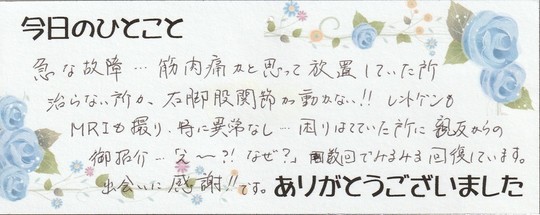 今日のひとこと
急な故障…筋肉痛かと思って放置していた所
治らない所か、左脚股関節が動かない!! レントゲンも
MRIも撮り、特に異常なし…困りはてていた所に親友からの
御紹介…「え〜?! なぜ?」数回でみるみる回復しています。
出会いに感謝!!です。
ありがとうございました